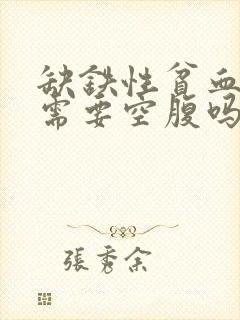 缺鉄性貧血
需要空腹吗
張秀余